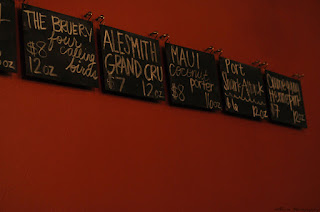 THE BRUERY
four
calling
birds
$8
12oz
ALESMITH
GRAND CRU
$7 12oz
MAUI
coconut
porter
$8 16oz
Port
Shark Attack
$6 12oz
12oz